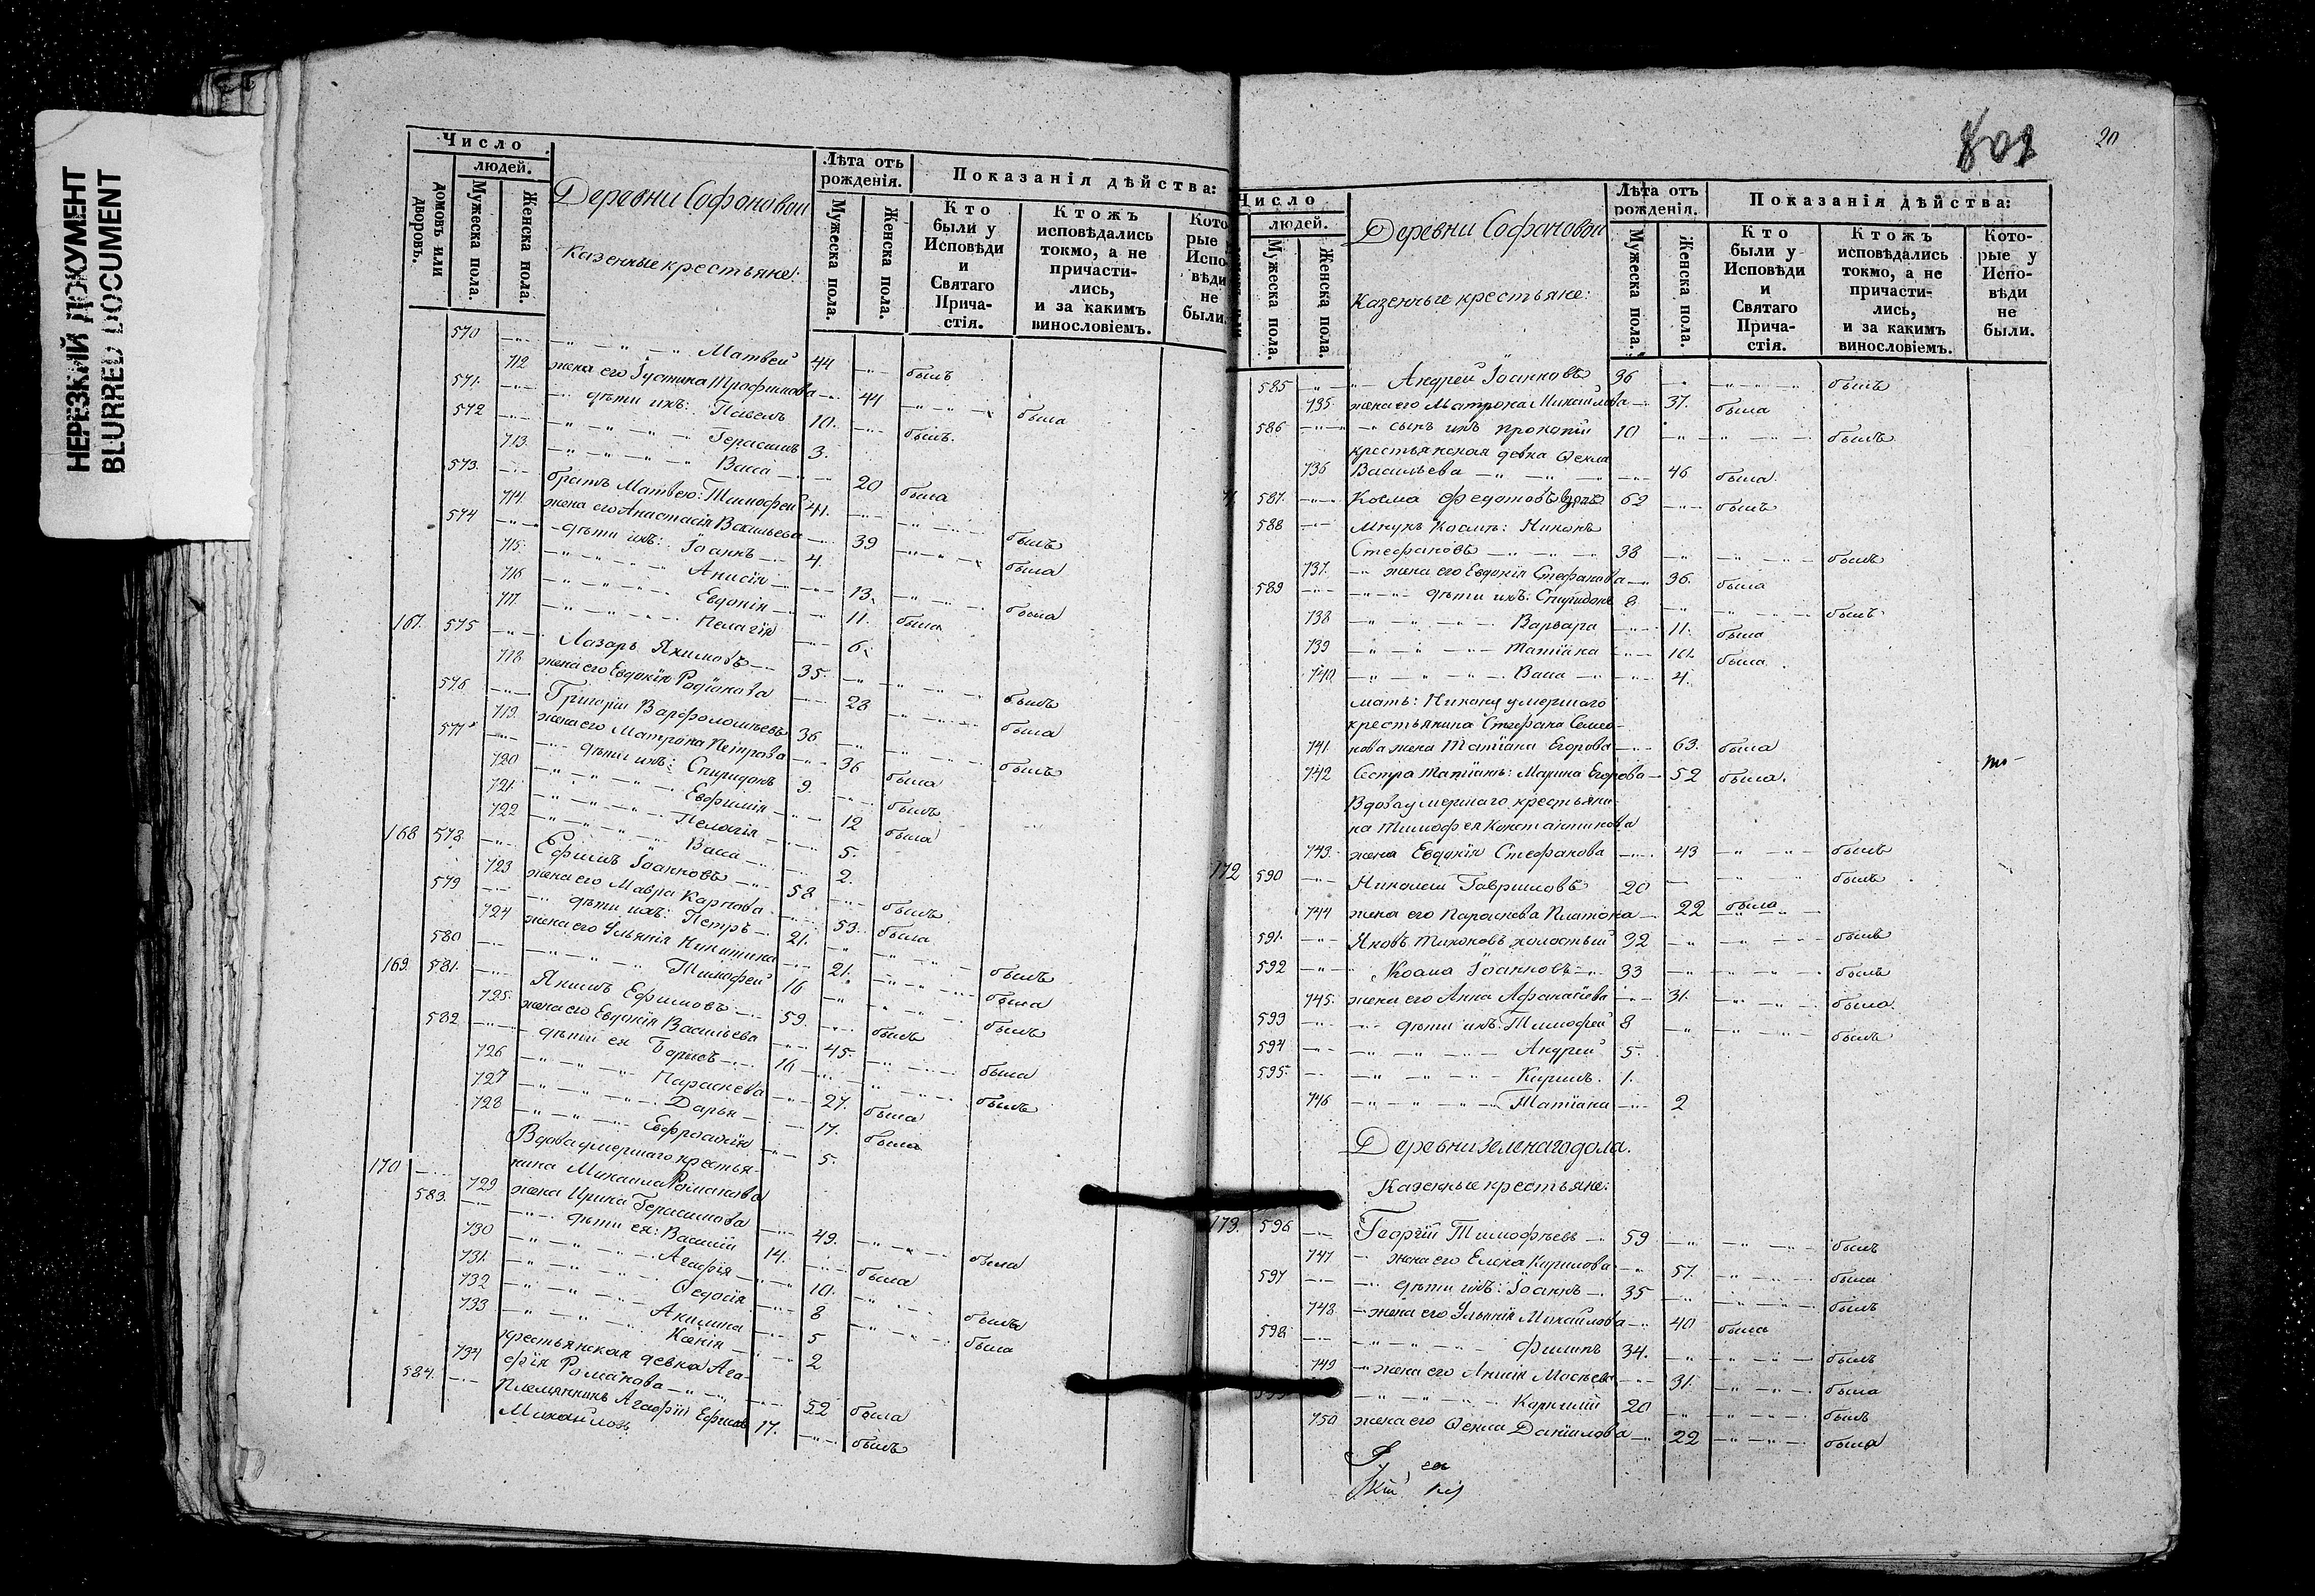 НЕРЕЗКИЙ ДОКУМЕНТ
BLURRED DOCUMENT
Число
людей.
домовъ или дворовъ.
Мужеска пола.
Женска пола.
Деревни Софоновой
Казенные крестьяне:
Лѣта отъ рожденія.
Мужеска пола.
Женска пола.
Показанія дѣйства:
Кто были у Исповѣди и Святаго Прича-стія.
Ктожъ исповѣдались токмо, а не причасти-лись, и за какимъ винословіемъ.
Кото рые Испо вѣди не были.
570 Матвей 44 былъ
712 жена его Іустина Трофимова 44 была
571. дѣти ихъ: Павелъ 10. былъ.
572 Герасимъ 3.
713. Васса 20 была
573. братъ Матвею: Тимофей 41. былъ
714 жена его Анастасія Васильева 39 была
574 дѣти ихъ: Іоаннъ 4.
715. Анисія 13. была
716 Евдокія 11. была
717. Пелагія 6.
167. 575 Лазарь Якимовъ 35. былъ
718 жена его Евдокія Родіонова 28 была
576 Григорій Варфоломѣевъ 36 былъ
719. жена его Матрона Петрова 36 была
577 дѣти ихъ: Спиридонъ 9. былъ
720 Евфимія 12 была
721. Пелагія 5.
722 Васса 2.
168 578. Ефимъ Іоанновъ 58 былъ
723 жена его Мавра Карпова 53. была
579 дѣти ихъ: Петръ 21. былъ
724 жена его Ульянія Никитина 21. была
580 Тимофей 16 былъ
169. 581. Якимъ Ефимовъ 59. былъ
725. жена его Евдокія Васильева 45. была
582 дѣти ея Борисъ 16 былъ
726 Параскева 27. была
727 Дарья 17. была
728 Евфросинія 5.
Вдова умершаго крестья-
170 нина Михаила Романова
729 жена Ирина Герасимова 49. была
583. дѣти ея: Василій 14. былъ
730 Агафія 10. была
731. Ѳедосія 8
732 Акилина 5
733 Ксенія 2
крестьянская девка Ага-
734 фія Романова 52 была
584. Племянникъ Агафіи Ефимъ
Михайловъ 17. былъ
801
20
Число
людей.
Мужеска пола.
Женска пола.
Деревни Софоновой
Казенные крестьяне:
Лѣта отъ рожденія.
Мужеска пола.
Женска пола.
Показанія дѣйства:
Кто были у Исповѣди и Святаго Прича-стія.
Ктожъ исповѣдались токмо, а не причасти-лись, и за какимъ винословіемъ.
Кото-рые у Испо-вѣди не были.
585 Андрей Іоанновъ 36 былъ
735. жена его Матрона Михайлова 37. была
586 сынъ ихъ Прокопій 10 былъ
крестьянская девка Ѳекла
736 Васильева 46 была
587. Косма Федотовъ вдовъ 62 былъ
588 Внукъ Космы: Никонъ
Стефановъ 38 былъ
737. жена его Евдокія Стефанова 36. была
589 дѣти ихъ: Спиридонъ 8 былъ
738 Варвара 11. была
739 Татіана 10. была
740 Васса 4.
мать: Никона умершаго
крестьянина Стефана Семе-
741. нова жена Татіана Егорова 63. была
742 Сестра Татіаны: Марина Егорова 52 была.
Вдова умершаго крестьяни-
на Тимофея Константинова
743. жена Евдокія Стефанова 43 былъ
172 590 Николай Гавриловъ 20 былъ
744 жена его Параскева Платона 22 была
591. Яковъ Тихоновъ холостый 32 былъ
592 Косма Іоанновъ 33 былъ
745. жена его Анна Афанасіева 31. была
593 дѣти ихъ: Тимофей 8 былъ
594 Андрей 5.
595. Кирилъ. 1.
746 Татіана 2
Деревни Зеленагодола.
Казенные крестьяне:
173. 596 Георгій Тимофѣевъ 59 былъ
747 жена его Елена Кирилова 57. была
597 дѣти ихъ: Іоаннъ 35 былъ
748 жена его Ульянія Михайлова 40 была
598 Филипъ 34. былъ
749 жена его Анисія Мосѣева 31. была
599 Корнилій 20 былъ
750 жена его Ѳекла Даниилова 22 была